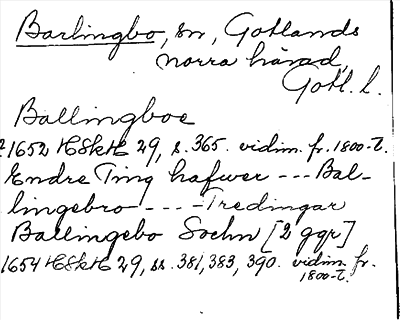 Barlingbo, sn, Gotlands
norra härad,
Gotl. l.
Ballingboe
1652 HSkH 29, s. 365. vidim. fr. 1800-t.
Endre Ting hafwer --- Bal-
lingebro --- Tredingar
Ballingebo Sochn [2 ggr]
1654 HSkH 29, ss. 381, 383, 390. vidim. fr.
1800-t.